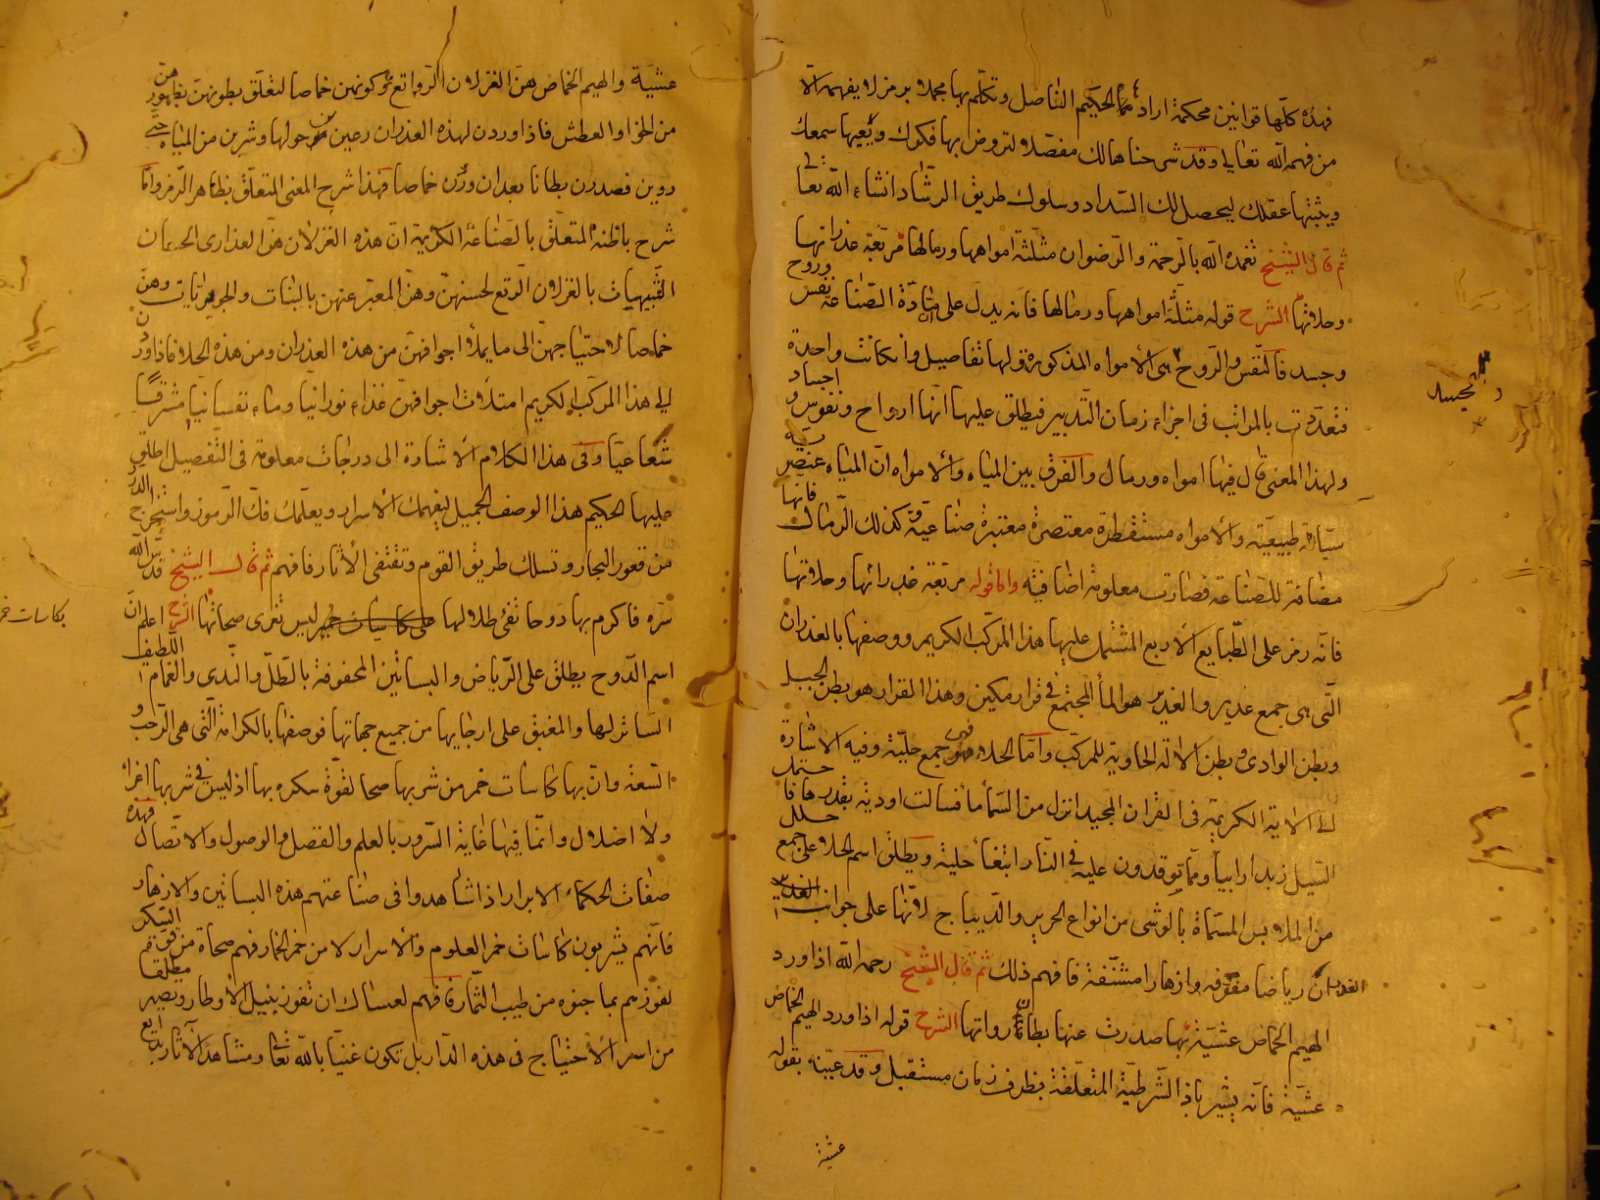 فهذه كلّها قوانين محكمة اراد الحكيم الفاضل وتكلّم بها مجملا برمز لا يفهمه الّا
من فهمه الله تعالى وقد شرحناها لك مفصّلا لتروض بها فكرك ويعيها سمعك
ويثبتها عقلك ليحصل لك السّداد وسلوك طريق الرّشاد انشاء الله تعالى
ثم قال الشيخ تغمده الله بالرّحمة والرّضوان مثلّثة امواهها ورمالها مربّعة غدرانها
وحلاتها الشرح قوله مثلّثة امواهها ورمالها فانه يدل على انّ مادّة الصّناعة نفس وروح
وجسد فالنّفس والرّوح هى الأمواه المذكورة ولها تفاصيل وان كانت واحدة
فتعدّدت بالمراتب فى اجزاء زمان التّدبير فيطلق عليها انّها ارواح ونفوس واجساد
ولهذا المعنى قال فيها امواه ورمال والفرق بين المياه والأمواه انّ المياه عنصريّة
سيّالة طبيعيّة والأمواه مستقطرة معتصرة معتبرة صناعيّة وكذلك الرّمال فانّها
مضافة للصّناعة فصارت معلومة اضافيّة واما قوله مربّعة غدرانها وحلاتها
فانّه رمز على الطّبايع الأربع المشتمل عليها هذا المركّب الكريم ووصفها بالغدران
الّتى هى جمع غدير والغدير هو الماء المجتمع فى قرار مكين وهذا القرار هو بطن الجبيل
وبطن الوادى وبطن الالة الحاوية للمركّب وامّا الحلا فهى جمع حليّة وفيه الاشارة
الى الاية الكريمة فى القران المجيد انزل من السّماء ماء فسالت اودية بقدرها فاحتمل
السّيل زبدا رابيا وممّا توقدون عليه فى النّار ابتغاء حلية ويطلق اسم الحلا على جمع حلل
من الملابس المسمّاة بالوشى من انواع الحرير والدّيباج لانّها على جوانب
الغدران رياضا مفوّفة وازهارا مشنّفة فافهم ذلك ثم قال الشيخ رحمه الله اذا ورد
الهيم الخماص عشيّة بها صدرت عنها بطانا رواتها الشرح قوله اذا ورد الهيم الخماص
عشيّة فانّه يشير باذ الشّرطيّة المتعلّقة بظرف زمان مستقبل وقد عيّنه بقوله
عشيّة
عشيّة والهيم الخماص هنّ الغزلان الرّواتع وكونهن خماصا لتعلّق بطونهنّ بظهورهنّ
من الخوا والعطش فاذا وردن لهذه الغدران رعين من حولها وشربن من المياه حتى
روين فصدرن بطانا بعد ان وردن خماصا فهذا شرح المعنى المتعلّق بظاهر الرّمز وامّا
شرح باطنه المتعلّق بالصّناعة الكريمة انّ هذه الغزلان هنّ العذارى الحسان
البهيّات بالغزلان الرّتع لحسنهنّ وهنّ المعبّر عنهن بالبنات والجويريّات وهنّ
خماصا لاحتياجهنّ الى ما يملأ اجوافهنّ من هذه الغدران ومن هذه الحلا فاذا وردن
الى هذا المركّب الكريم امتلأت اجوافهنّ غذاء نورانيّا وماء نفسانيّا مشرقًا
شعاعيّا وفى هذا الكلام الأشارة الى درجات معلومة فى التّفصيل اطلق
عليها الحكيم هذا الوصف الجميل ليفهمك الأسرار ويعلّمك فكّ الرّموز واستخراج الدّرّ
من قعور البحار وتسلك طريق القوم وتقتفى الأثار فافهم ثم قال الشيخ قدّس الله
سرّه فاكرم بها دوحا تفئ ظلالها ليس تغرى صحاتها الشرح اعلم انّ
اسم الدّوح يطلق على الرّياض والبساتين المحفوفة بالطّلّ والنّدى والغمام اللّطيف
السّاتر لها والمغبق على ارجايها من جميع جهاتها فوصفها بالكرامة الّتى هى الرّحب و
السّعة وانّ بها كاسات خمر من شربها صحا لقوّة سكره بها اذ ليس فى شربها اغواء
ولا اضلال وانّما فيها غاية السّرور بالعلم والفضل والوصول والاتّصال فهذه
صفات الحكماء الابرار اذا شاهدوا فى صناعتهم هذه البساتين والازهار
فانّهم يشربون كاسات خمر العلوم والأسرار لا من خمر الخمار فهم صحاة من السّكر
لفوزهم بما جنوه من طيب الثّمار فافهم لعساك ان تفوز بنيل الأوطار وتصير مطلقا
من اسر الأحتياج فى هذه الدّار بل تكون غنيّا بالله تعالى ومشاهدا لآثار بدايع
بكاسات خمر